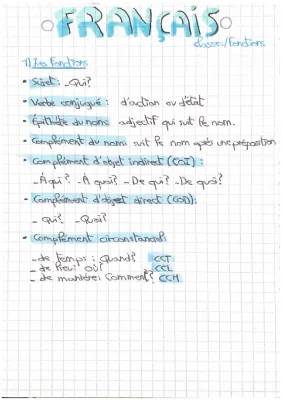 FRANÇAIS
classes/fonctions
1) Les fonctions
• Sujet: - Qui?
• Verbe conjugué: d'action ou d'état
• Epithète du nom: adjectif qui suit le nom
• Complément du nom: suit le nom après une préposition
• Complément d'objet indirect (COI):
- À qui? - À quoi? - De qui? - De quoi?
• Complément d'objet direct (COD):
- Qui? - Quoi?
• Complément circonstanciel:
- de temps: Quand? CCT
- de lieu: Où? CCL
- de manière: Comment? CCM